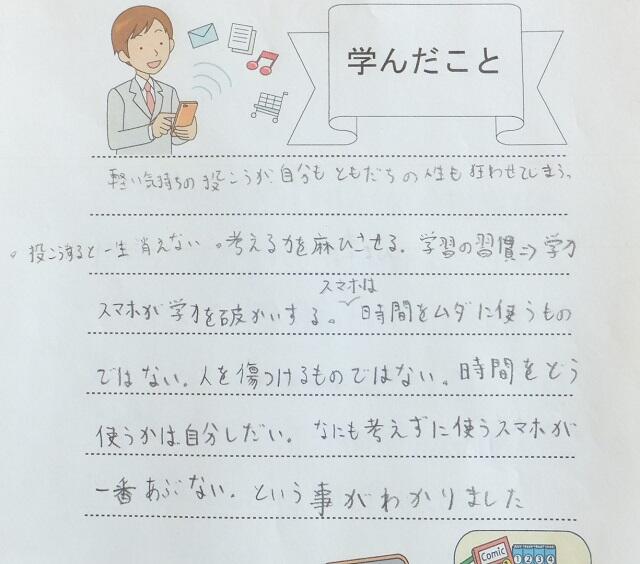 学んだこと
軽い気持ちの投こうが、自分もともだちの人生も狂わせてしまう。
。投こうすると一生消えない。考える力を麻ひさせる。学習の習慣⇒学力
スマホは
スマホが学力を破かいする。時間をムダに使うもの
ではない。人を傷つけるものではない。時間をどう
使うかは自分しだい。なにも考えずに使うスマホが
一番あぶない。という事がわかりました
Comic
1 2 3 4